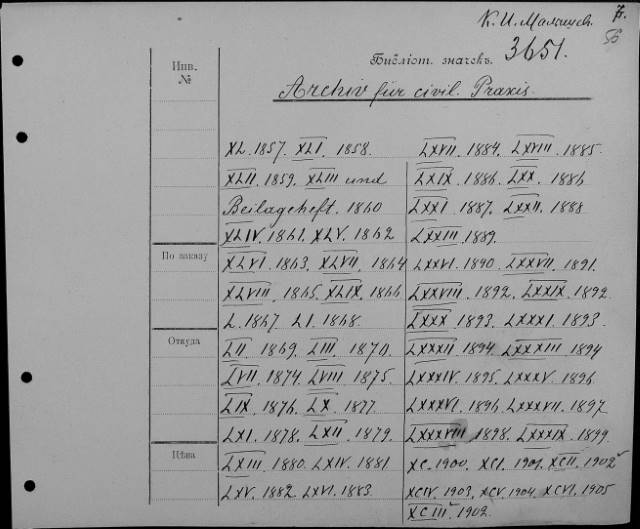 К. И. Малышев.
Библіот. значекъ. 3651.
Инв.
№
Archiv für civil. Praxis.
XL. 1857. XLI. 1858.
XLII. 1859. XLIII und
Beilageheft. 1860
XLIV. 1861. XLV. 1862
XLVI. 1863. XLVII. 1864
XLVIII. 1865. XLIX. 1866
L. 1867. LI. 1868.
LII. 1869. LIII. 1870.
LVII. 1874. LVIII. 1875.
LIX. 1876. LX. 1877.
LXI. 1878. LXII. 1879.
LXIII. 1880. LXIV. 1881
LXV. 1882. LXVI. 1883.
LXVII. 1884. LXVIII. 1885.
LXIX. 1886. LXX. 1886
LXXI. 1887. LXXII. 1888
LXXIII. 1889.
LXXVI. 1890. LXXVII. 1891.
LXXVIII. 1892. LXXIX. 1892.
LXXX. 1893. LXXXI. 1893.
LXXXII. 1894. LXXXIII. 1894
LXXXIV. 1895. LXXXV. 1896
LXXXVI. 1896. LXXXVII. 1897
LXXXVIII. 1898. LXXXIX. 1899.
XC. 1900. XCI. 1901. XCII. 1902
XCIV. 1903. XCV. 1904. XCVI. 1905
XCIII. 1902.
По заказу
Откуда
Цѣна